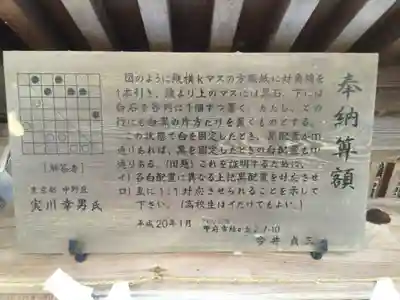 奉納算額
図のように縦横kマスの方眼紙に対角線を
1本引き、線より上のマスには黒石、下には
白石を各列に1個ずつ置く。ただし、どの
行にも白黒の片方だけを置くものとする。
この状態で白を固定したとき、黒配置がm
通りあれば、黒を固定したときの白配置もm
通りある。(旧題)これを証明するために、
イ)各白配置に異なる上記黒配置を対応させ
ロ)直に1:1対応させられることを示して
下さい。(高校生はイだけでもよい。)
平成20年1月
甲府市
7-10
今井 貞三
[解答者]
東京都 中野区
実川幸男氏